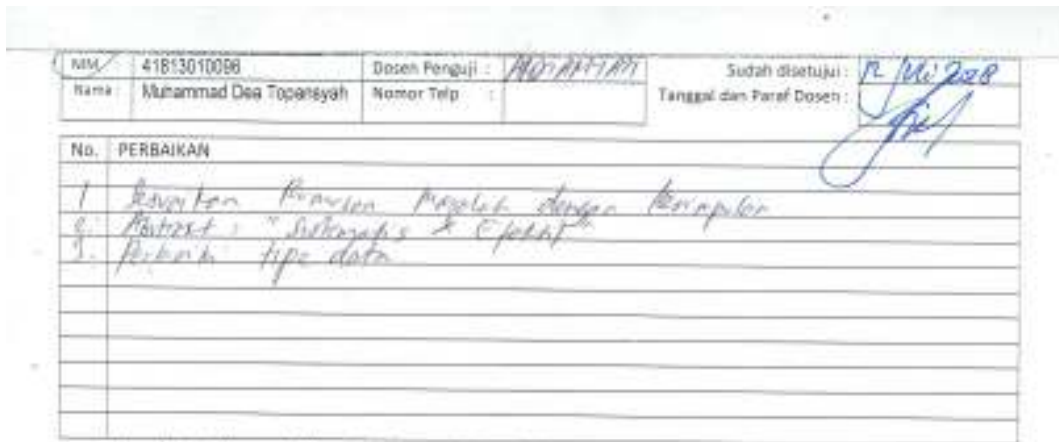 NIM 41813010096 Dosen Penguji : Sudah disetujui : 12 2018
Nama : Muhammad Dea Topansyah Nomor Telp : Tanggal dan Paraf Dosen :
No. PERBAIKAN
1 Sesuaikan Rumusan Masalah dengan Kesimpulan
2. Abstract : "Sistematis & Efektif"
3. Perbaiki tipe data